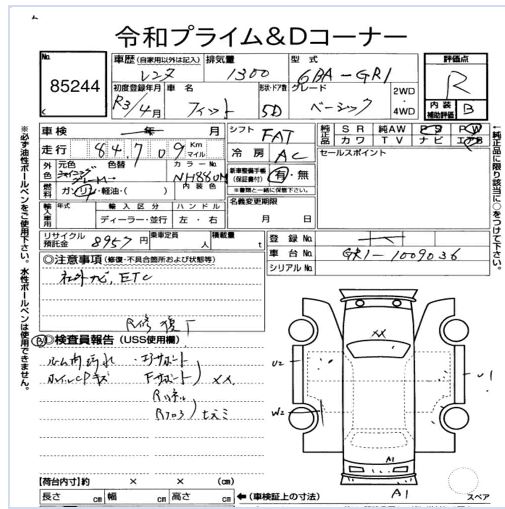 令和プライム&Dコーナー
No. 85244
車歴 (自家用以外は記入) レンタ
排気量 1300
型式 6BA-GR1
評価点 R
初度登録年月 R3/4月
車名 フィット
形状・ドア数 5D
グレード ベーシック
2WD
4WD
内装補助評価 B
車検 年 月
走行 84,709 Km マイル
シフト FAT
冷房 AC
純正品 SR 純AW PS PW
革 カワ TV ナビ エアB
外色 元色 色替
カラーNo. NH880M
燃料 ガソリン・軽油・( )
内装色
新車整備手帳(保証書付) 有・無
※書類と一緒に保管下さい。
セールスポイント
輸入車用 年式 輸入区分 ハンドル
ディーラー・並行 左・右
名義変更期限
月 日
リサイクル預託金 8957円
乗車定員 人
積載量 t
登録No.
車台No. GR1-1009036
シリアルNo.
◎注意事項 (修復・不具合箇所および状態等)
社外ナビ, ETC
R修復了
B
◎検査員報告 (USS使用欄)
ルーム内汚れ ・コアサポート
ホイルCPキズ Fサポート XX
Rパネル
Rフロア
U2
XX
U1
W2
A1
A1
【荷台内寸】約 × × (cm)
長さ cm 幅 cm 高さ cm
←(車検証上の寸法)
スペア
※必ず油性ボールペンをご使用下さい。水性ボールペンは使用できません。
←純正品に限り該当に○をつけて下さい。